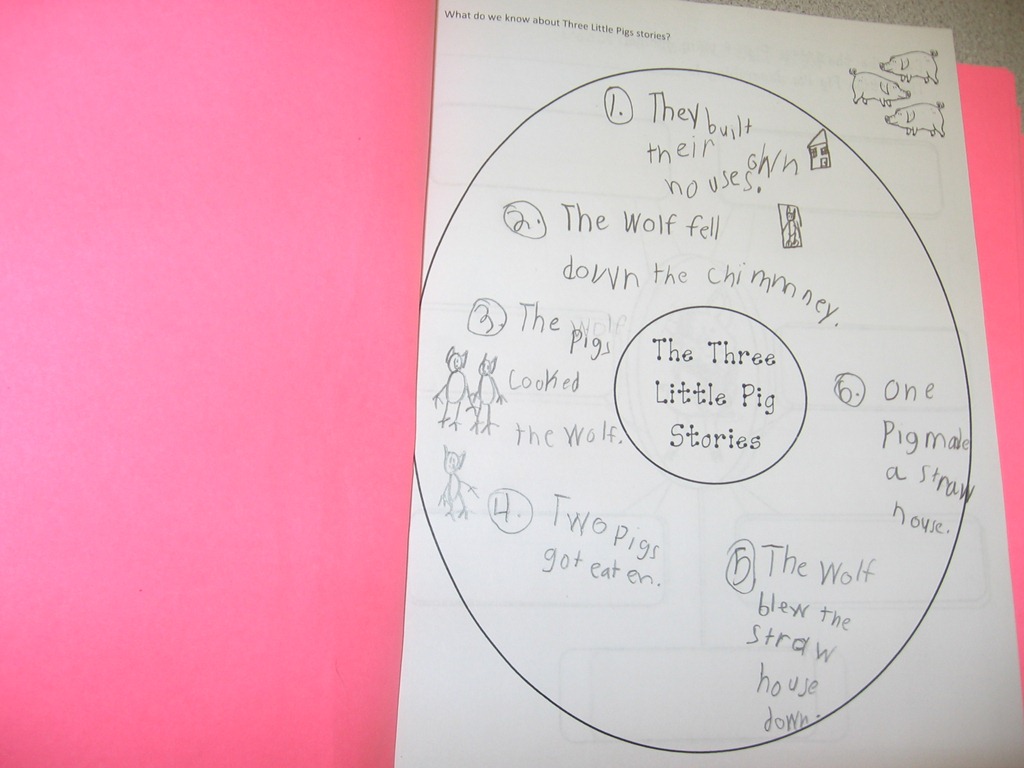 What do we know about Three Little Pigs stories?
1. They built
their own
houses.
2. The Wolf fell
down the chimmney.
3. The
pigs
Cooked
the Wolf.
The Three
Little Pig
Stories
6. One
Pig made
a straw
house.
4. Two pigs
got eaten.
5 The Wolf
blew the
straw
house
down.